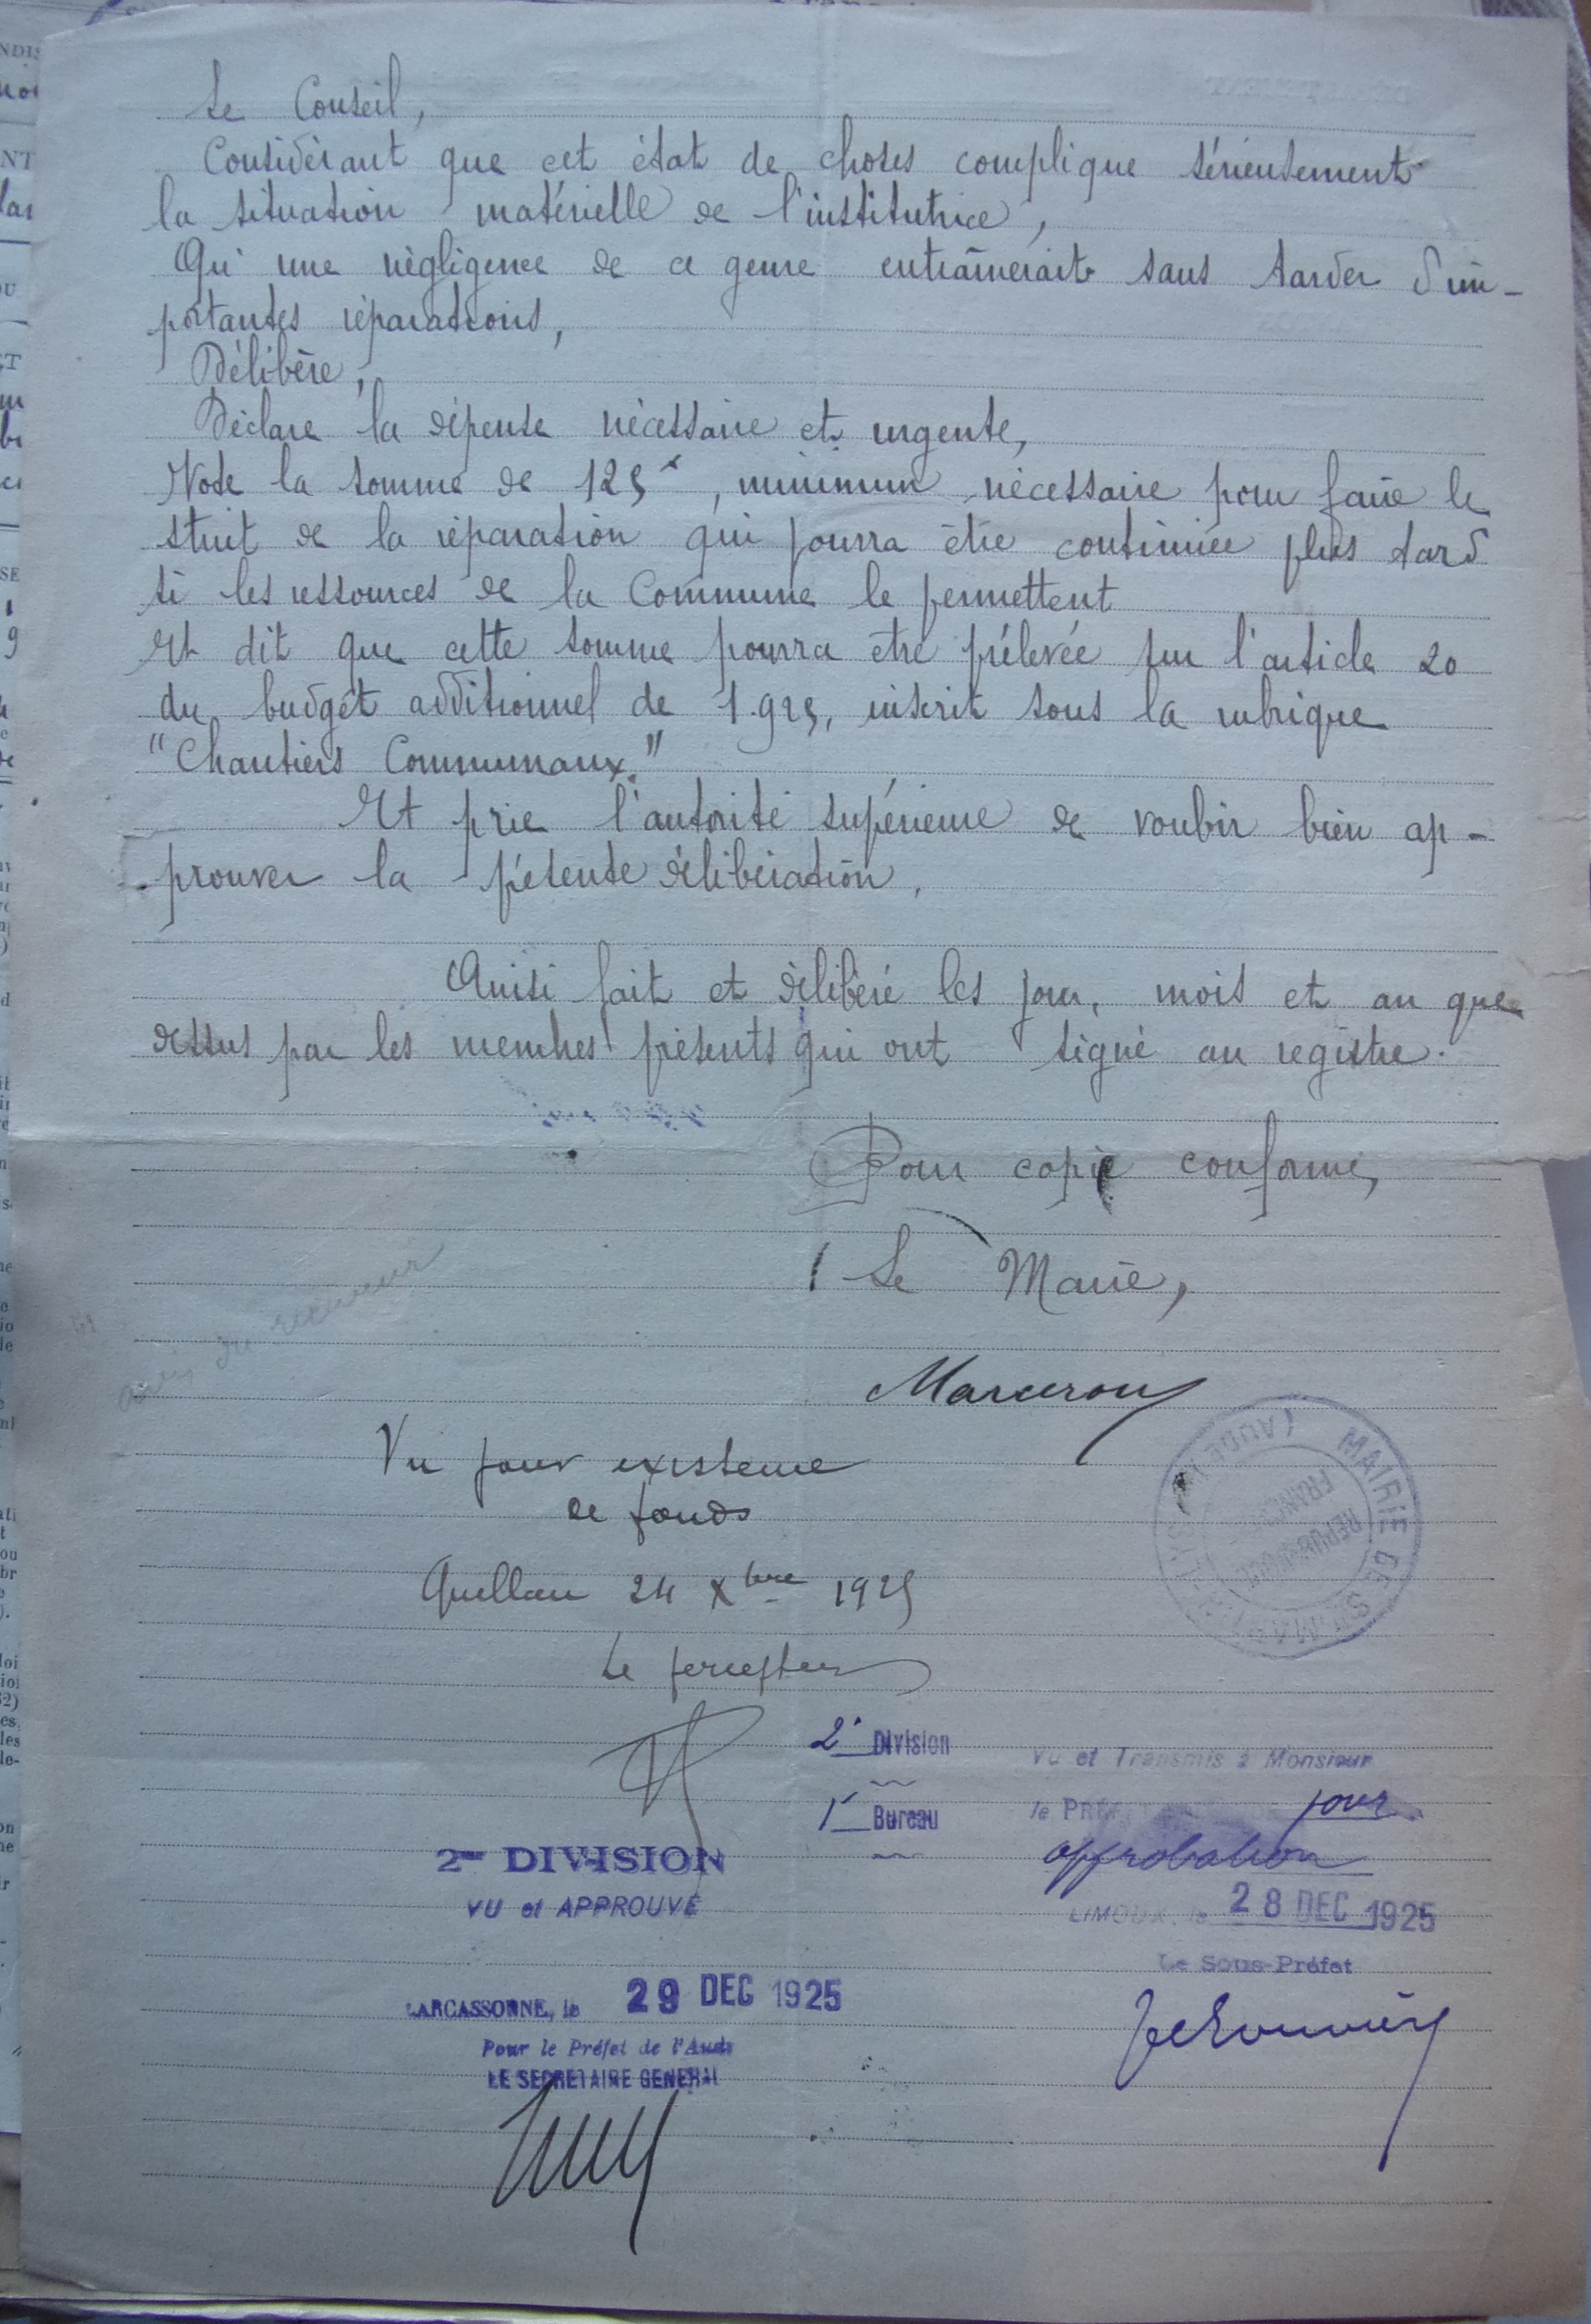 Le Conseil,
Considérant que cet état de choses complique sérieusement
la situation matérielle de l'institutrice,
Qu'une négligence de ce genre entraînerait sans tarder d'im-
portantes réparations,
Délibère,
Déclare la dépense nécessaire et urgente,
Vote la somme de 125 f, minimum nécessaire pour faire le
stuit de la réparation qui pourra être continuée plus tard
si les ressources de la Commune le permettent
Et dit que cette somme pourra être prélevée sur l'article 20
du budget additionnel de 1.925, inscrit sous la rubrique
"Chantiers Communaux."
Et prie l'autorité supérieure de vouloir bien ap-
prouver la présente délibération.
Ainsi fait et délibéré les jour, mois et an que
dessus par les membres présents qui ont signé au registre.
Pour copie conforme,
Le Maire,
avis du receveur
Marcerou
Vu pour existence
de fonds
MAIRIE DE ST MARTIN-LYS (AUDE)
RÉPUBLIQUE FRANÇAISE
Quillan 24 Xbre 1925
Le percepteur
2e Division
Vu et Transmis à Monsieur
le PRÉFET pour
1r Bureau
approbation
2me DIVISION
VU et APPROUVÉ
LIMOUX, le 28 DEC 1925
Le Sous-Préfet
CARCASSONNE, le 29 DEC 1925
Pour le Préfet de l'Aude
LE SECRETAIRE GENERAL